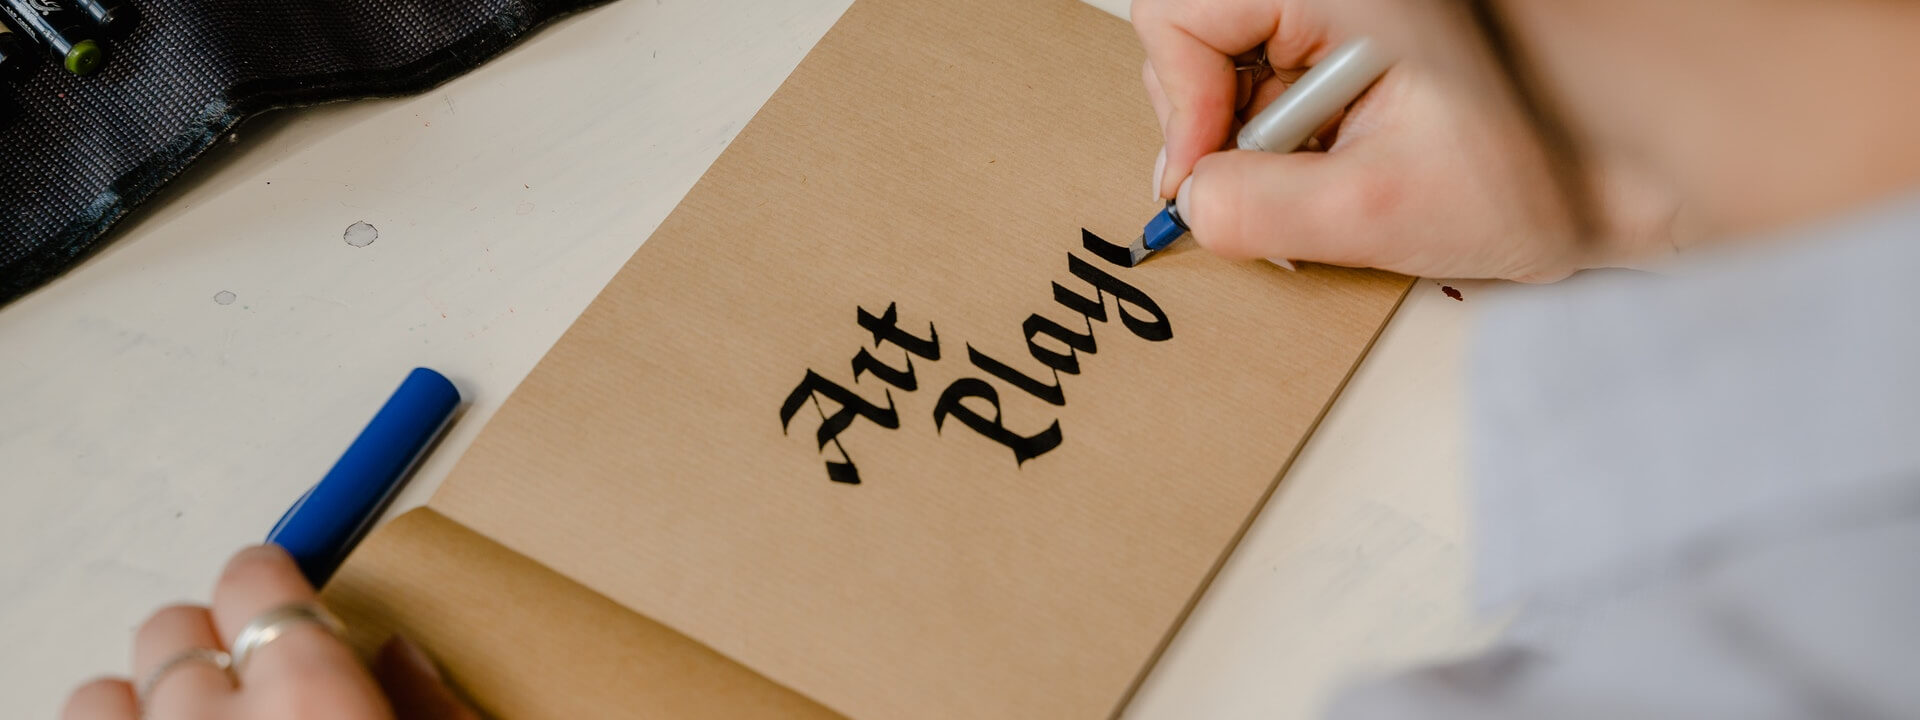 Art
Play